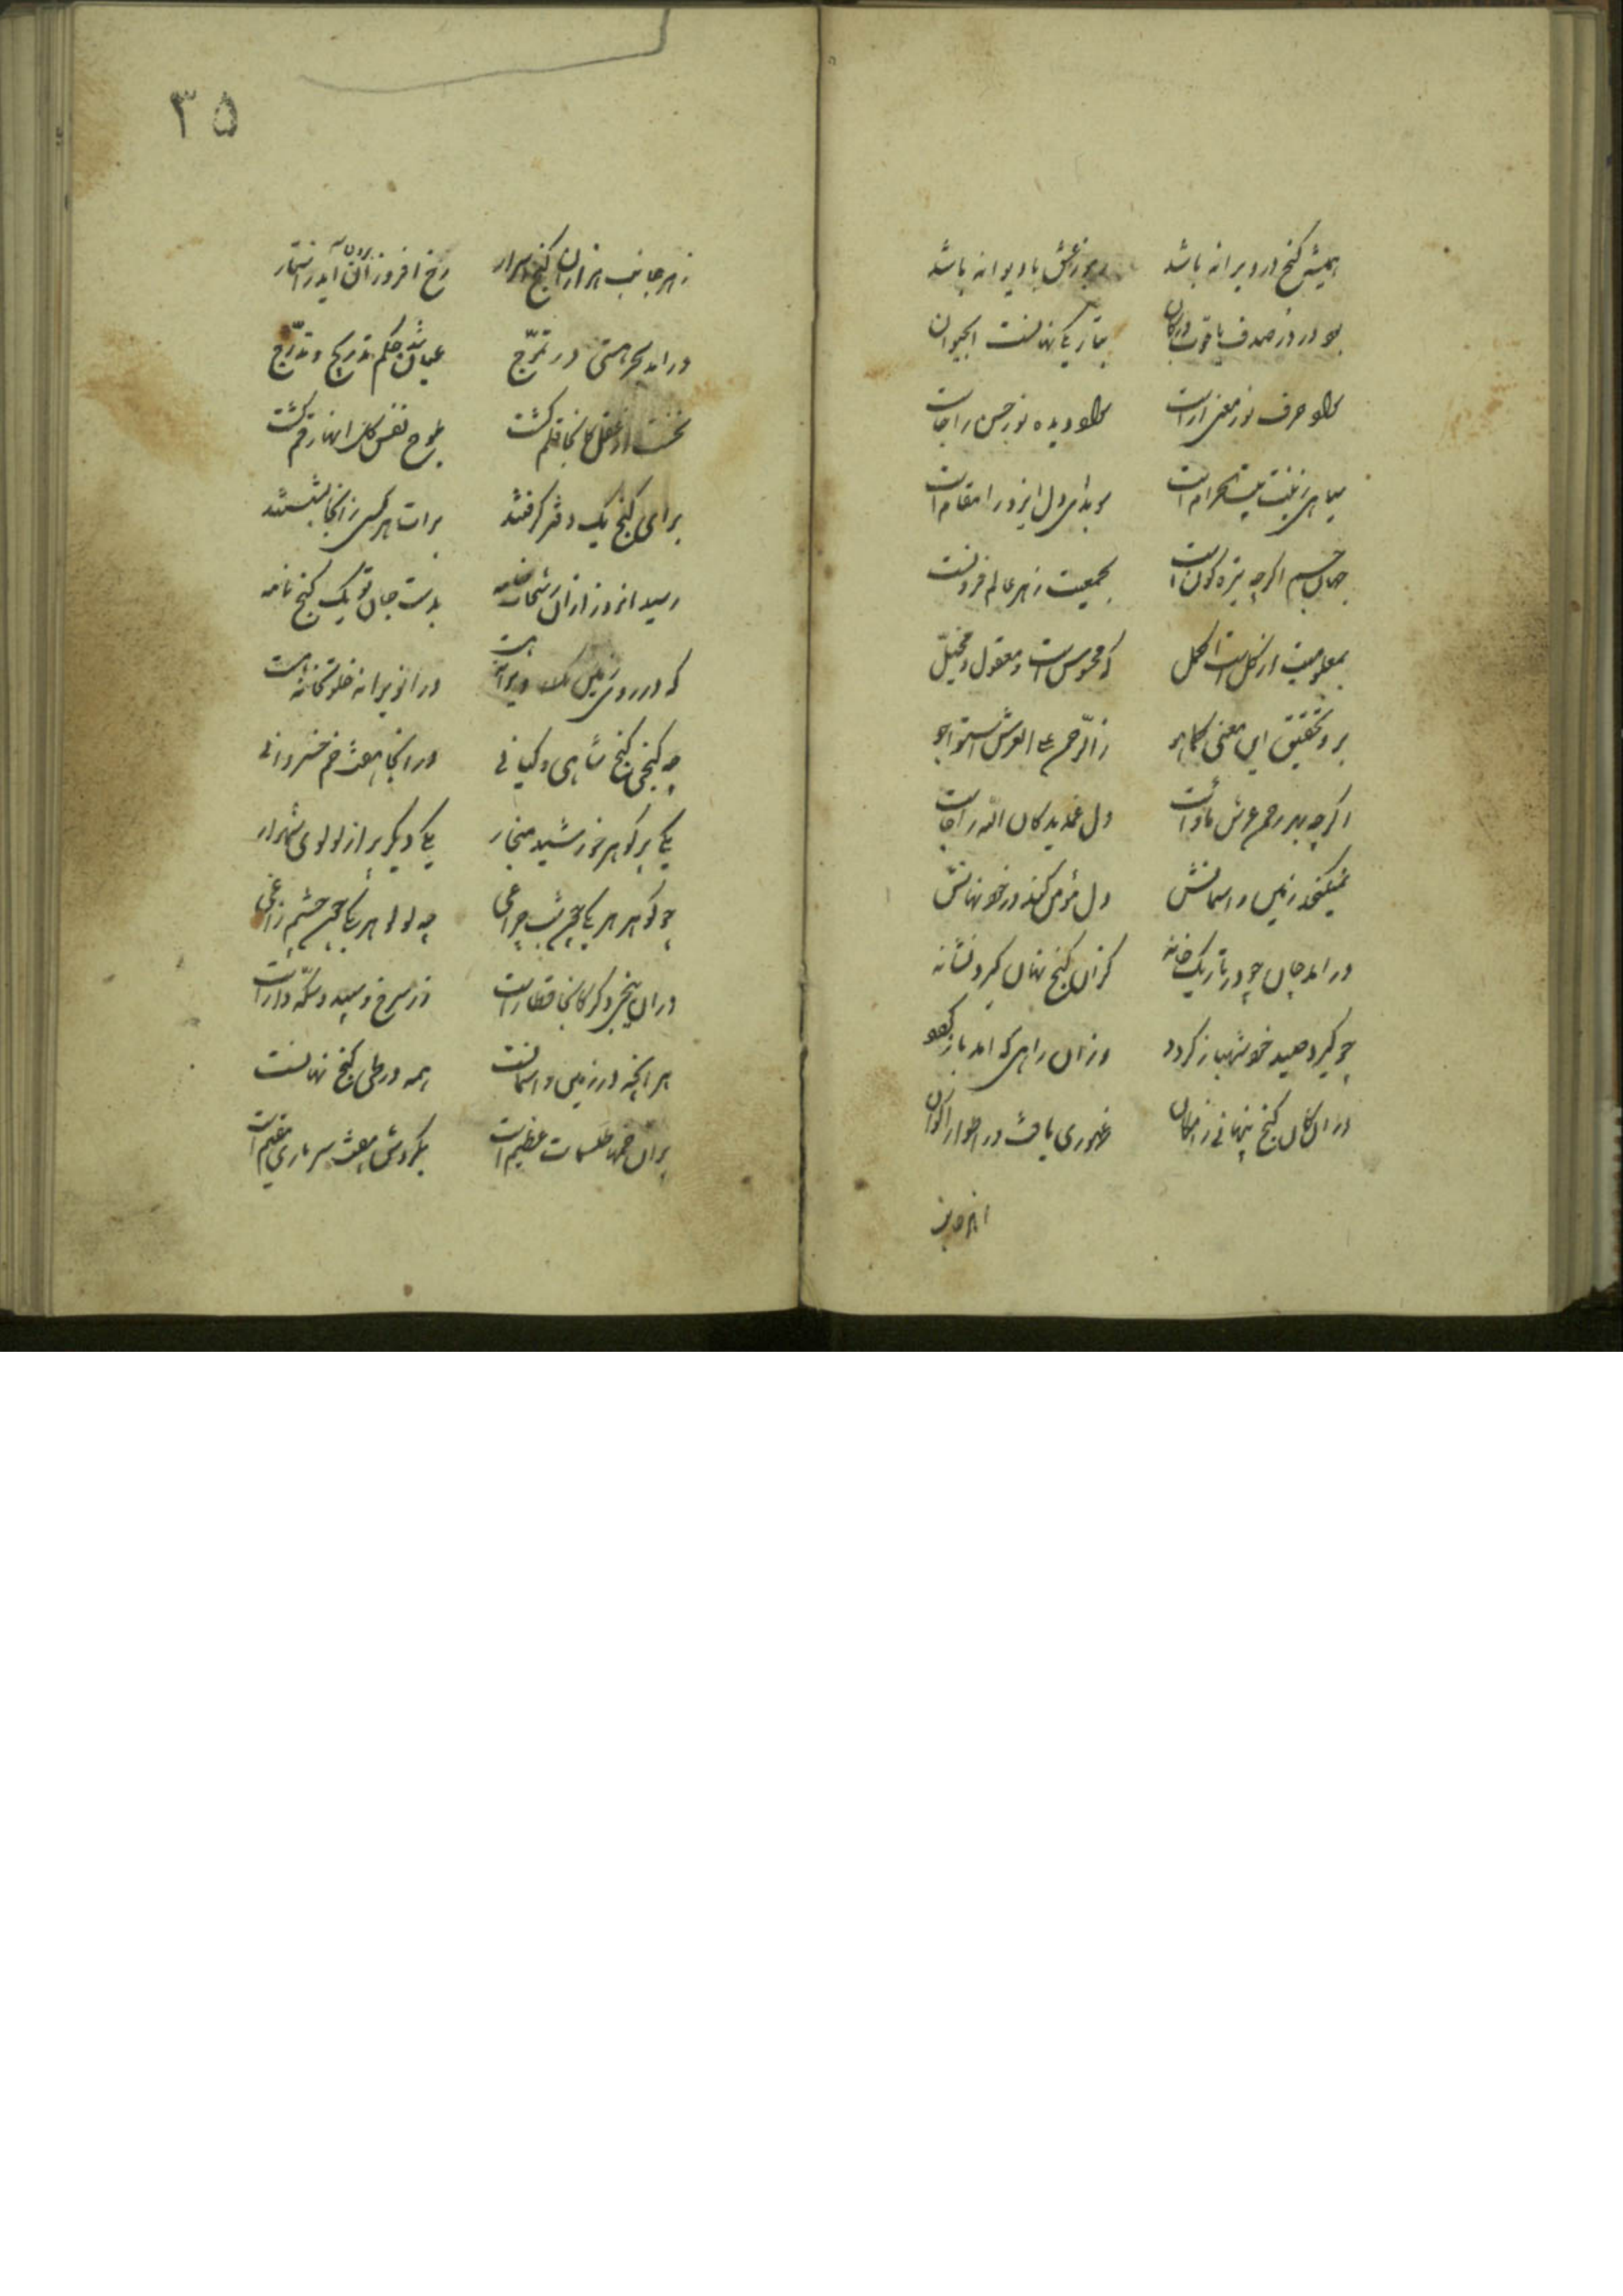 همیشه کنج در ویرانه باشد رموز عشق با دیوانه باشد
بود در در صدف یاقوت در کان بتاریکی نهانست ابحیوان
سواد حرف نور معنی اراست سواد دیده نور حس را جاست
سیاهی زینت بیت الحرام است سویدای دل ایزد را مقام است
جهان جسم اکرچه تیره کون است بجمعیت ز هر عالم فزونست
بمعلومیت از کل است اکمل که محسوس است و معقول و مخیل
برو تحقیق این معنی کماهو ز الرحمن علی العرش استوا جو
اکرچه بهر رحم عرش ماواست دل عبدیدکان الله را جاست
نمیکنجد زمین و اسمانش دل مؤمن کند در خود نهانش
در امد جان چو در تاریک خانه کزان کنج نهان کیرد نشانه
چو کیرد صید خود شهباز کردد وزان راهی که امد باز کردد
در ان کان کنج پنهانی ز امکان ظهوری یافت در اطوار اکوان
۳۵
ز هر جانب هزاران کنج اسرار رخ افروزان برون آید در انتهار
در امد بحر هستی در تموج عیان شد حکم تدریج و تدرج
نخست از عقل کل انجا قلم کشت بلوح نفس کل انها رقم کشت
برای کنج یک دفتر کرفتند برات هر کسی زانجا نبشتند
رسید انروز ازان رشحات خامه بدست جان تو یک کنج نامه
که در روی زمین ویرانه هست در انویرانه خلوتخانه هست
چه کنجی کنج شاهی و کیانی در انجا هفت خم خسروانی
یکی پر کوهر خورشید منجار یکی دیکر پر از لولوی شهوار
چو کوهر هر یکی چون شب چراغی چه لولو هر یکی چون چشم زاغی
در ان پنجی دکر کانجا قطار است زر سرخ و سپید و سکه دار است
هر انچه در زمین و اسمانست همه در طی کنج نهانست
بران خمها طلسمات عظیم است بکردش هفت سر ماری مقیم است